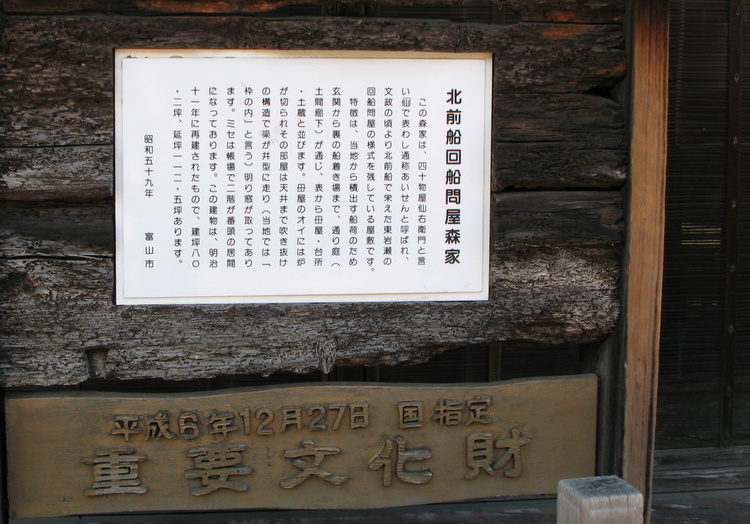 北前船回船問屋森家
この森家は、四十物屋仙右衛門と言
い仙で表わし通称あいせんと呼ばれ、
文政の頃より北前船で栄えた東岩瀬の
回船問屋の様式を残している屋敷です。
特徴は、当地から積出す船荷のため
玄関から裏の船着き場まで、通り庭(
土間廊下)が通じ、表から母屋・台所
・土蔵と並びます。母屋のオイには炉
が切られその部屋は天井まで吹き抜け
の構造で梁が井型に走り(当地では「
枠の内」と言う)明り窓が取ってあり
ます。ミセは帳場で二階が番頭の居間
になっております。この建物は、明治
十一年に再建されたもので、建坪八〇
・二坪、延坪一一二・五坪あります。
昭和五十九年 富山市
平成6年12月27日 国指定
重要文化財